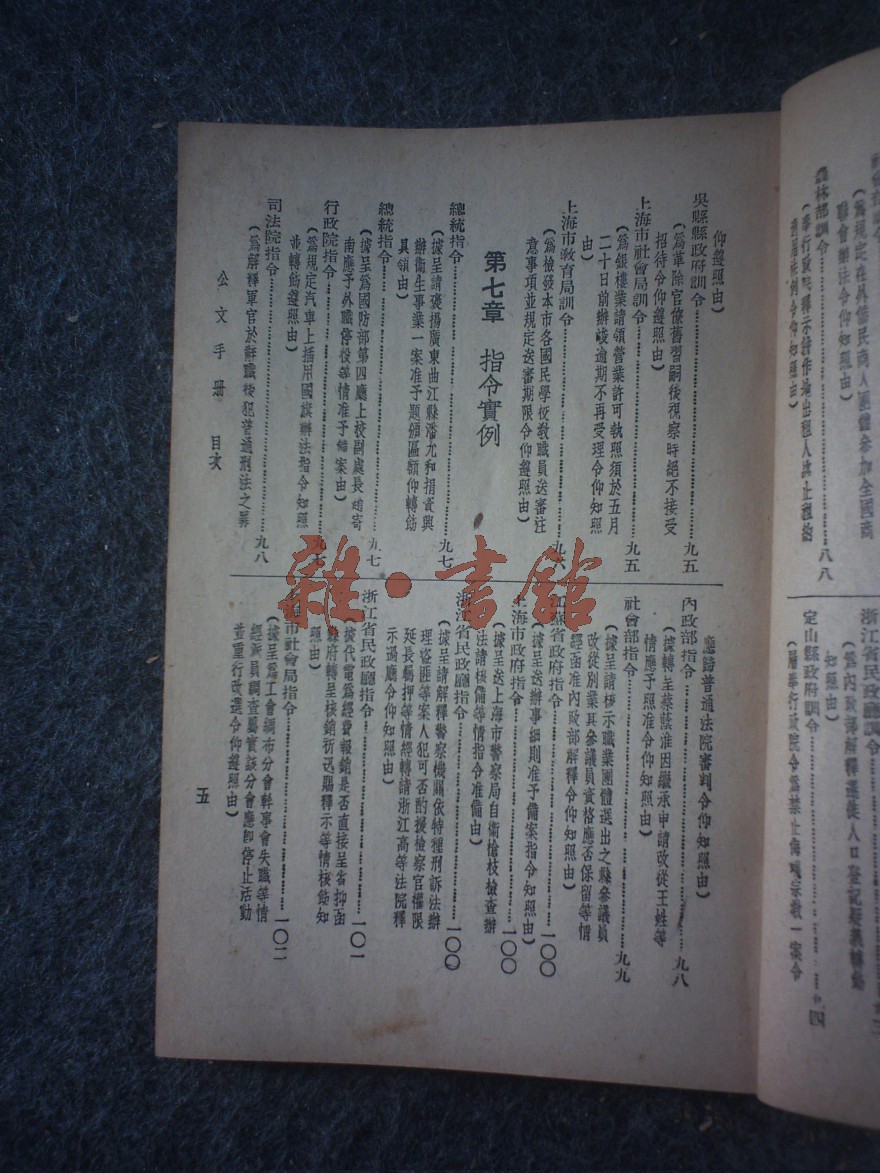 仰遵照由）
吳縣縣政府訓令……九五
（為革除官僚舊習嗣後視察時絕不接受
招待令仰遵照由）
上海市社會局訓令……九五
（為銀樓業請領營業許可執照須於五月
二十日前辦竣逾期不再受理令仰知照
由）
上海市教育局訓令……九六
（為檢發本市各國民學校教職員送審注
意事項並規定送審期限令仰遵照由）
第七章 指令實例
總統指令……九七
（據呈請褒揚廣東曲江縣潘允和捐資興
辦衞生事業一案准予題頒區額仰轉飭
具領由）
總統指令……九七
（據呈為國防部第四廳上校副處長 寄
南應予外職停役等情准予備案由）
行政院指令……九七
（為規定汽車上插用國旗辦法指令知照
並轉飭遵照由）
司法院指令……九八
（為解釋軍官於辭職後犯普通刑法之罪
應歸普通法院審判令仰知照由）
內政部指令……九八
（據轉呈蔡 准因繼承申請改從王姓等
情應予照准令仰知照由）
社會部指令……九九
（據呈請核示職業團體選出之縣參議員
改從別業其參議員資格應否保留等情
經函准內政部解釋令仰知照由）
江蘇省政府指令……一〇〇
（據呈送辦事細則准予備案指令知照由）
上海市政府指令……一〇〇
（據呈送上海市警察局自衛槍枝檢查辦
法請核備等情指令准備由）
浙江省民政廳指令……一〇〇
（據呈請解釋警察機關依特種刑訴法辦
理盜匪等案人犯可否酌援檢察官權限
延長羈押等情經轉請浙江高等法院釋
示過廳令仰知照由）
浙江省民政廳指令……一〇一
（據代電為經費報銷是否直接呈省抑函
縣府轉呈核銷祈迅賜釋示等情核飭知
照由）
上海市社會局指令……一〇二
（據呈為工會調布分會幹事會失職等情
經派員調查屬實該分會應即停止活動
並重行改選令仰遵照由）
公文手册 目次
五
農林部訓令……八八
定山縣政府訓令
浙江省民政廳訓令
雜·書館